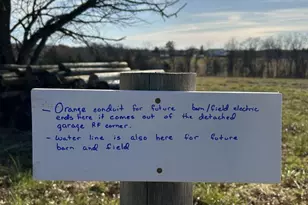 - Orange conduit for future barn/field electric
ends here it comes out of the detached
garage RF corner.
- Water line is also here for future
barn and field